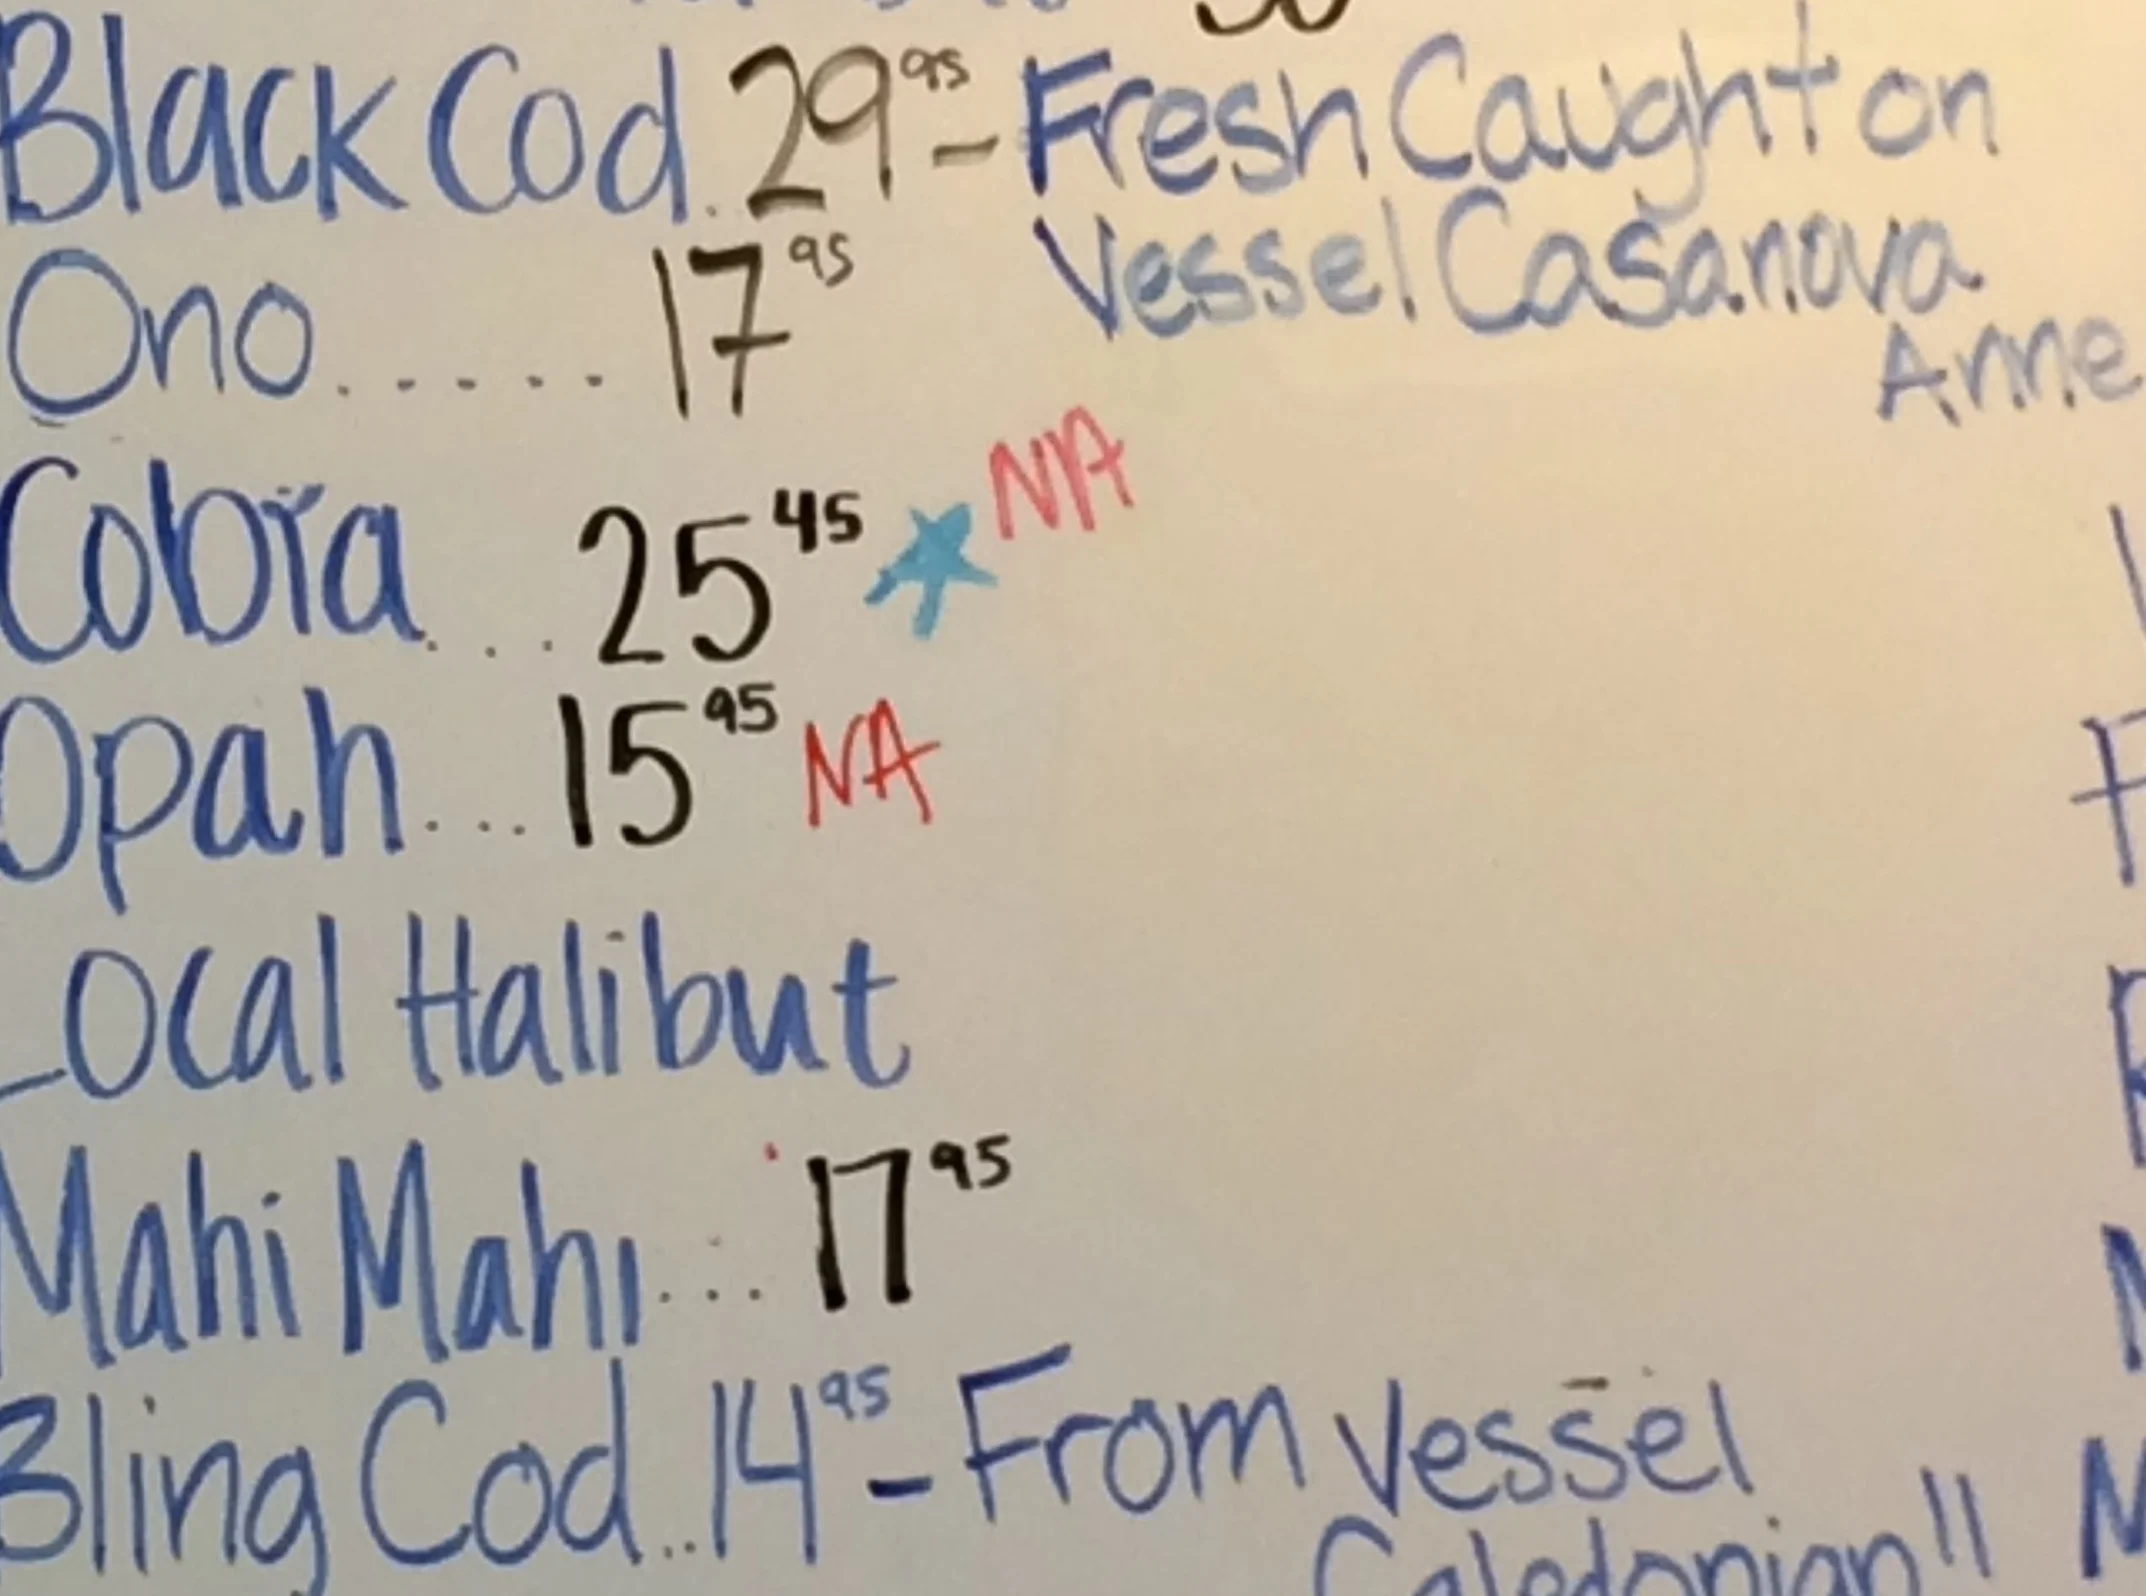 Black Cod. 29 95 - Fresh Caught on
Vessel Casanova
Anne
Ono..... 17 95
Cobia... 25 45 NA
Opah... 15 95 NA
Local Halibut
Mahi Mahi... 17 95
Bling Cod.. 14 95 - From Vessel
Caledonian"